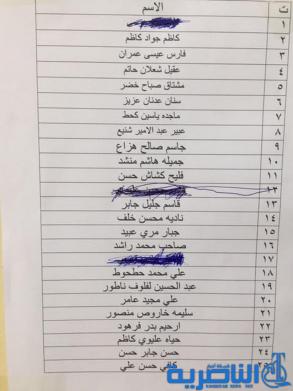 ت الاسم
١
٢ كاظم جواد كاظم
٣ فارس عيسى عمران
٤ عقيل شعلان حاتم
٥ مشتاق صباح خضر
٦ سنان عدنان عزيز
٧ ماجده ياسين كحط
٨ عبير عبد الامير شنيع
٩ جاسم صالح هزاع
١٠ جميله هاشم منشد
١١ فليح كشاش حسن
١٢
١٣ قاسم جليل جابر
١٤ ناديه محسن خلف
١٥ جبار مري عبيد
١٦ صاحب محمد راشد
١٧
١٨ علي محمد حطحوط
١٩ عبد الحسين لفلوف ناطور
٢٠ علي مجيد عامر
٢١ سليمه خاروص منصور
٢٢ ارحيم بدر فرهود
٢٣ حياه عليوي كاظم
٢٤ حسن جابر حسن
كافي حسن علي
الناصرية